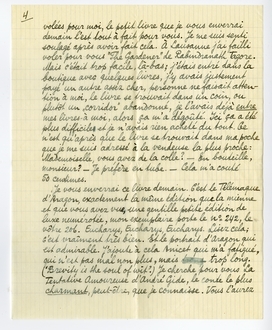 4
volées pour moi, le petit livre que je vous enverrai
demain c'est tout à fait pour vous. Je me suis senti
soulagé après avoir fait cela. À Lausanne j'ai failli
voler pour vous "The Gardener" de Rabindranath Tagore.
Mais c'était trop facile, là-bas j'étais entré dans la
boutique avec quelques livres, j'y avais justement
payé un autre assez cher, personne ne faisait atten-
tion à moi, le livre se trouvait dans un coin, ou
plutôt un corridor abandonné, je l'avais déjà entre
mes livres à moi, alors ça m'a dégoûté. Ici ça a été
plus difficile et je n'avais rien acheté du tout. Ce
n'est qu'après que le livre se trouvait dans ma poche
que je me suis adressé à la vendeuse la plus proche:
Mademoiselle, vous avez de la colle? — En bouteille,
monsieur? — Je préfère en tube. — Cela m'a coûté
50 centimes.
Je vous enverrai ce livre demain. C'est le Télémaque
d'Aragon, exactement la même édition que la mienne
et que vous avez vue, une gentille petite édition de
luxe numérotée, mon exemplaire porte le nº 242, le
vôtre 206. Eucharis, Eucharis, Eucharis. Lisez cela,
c'est vraiment très bien. Et le portrait d'Aragon qui
est admirable. J'ajoute à cela Anicet que m'a fatigué,
qui n'est pas mal non plus, mais trop long.
("Brevity is the soul of wit".) Je cherche pour vous La
Tentative Amoureuse d'André Gide, le conte le plus
charmant, peut-être, que je connaisse. Vous l'aurez